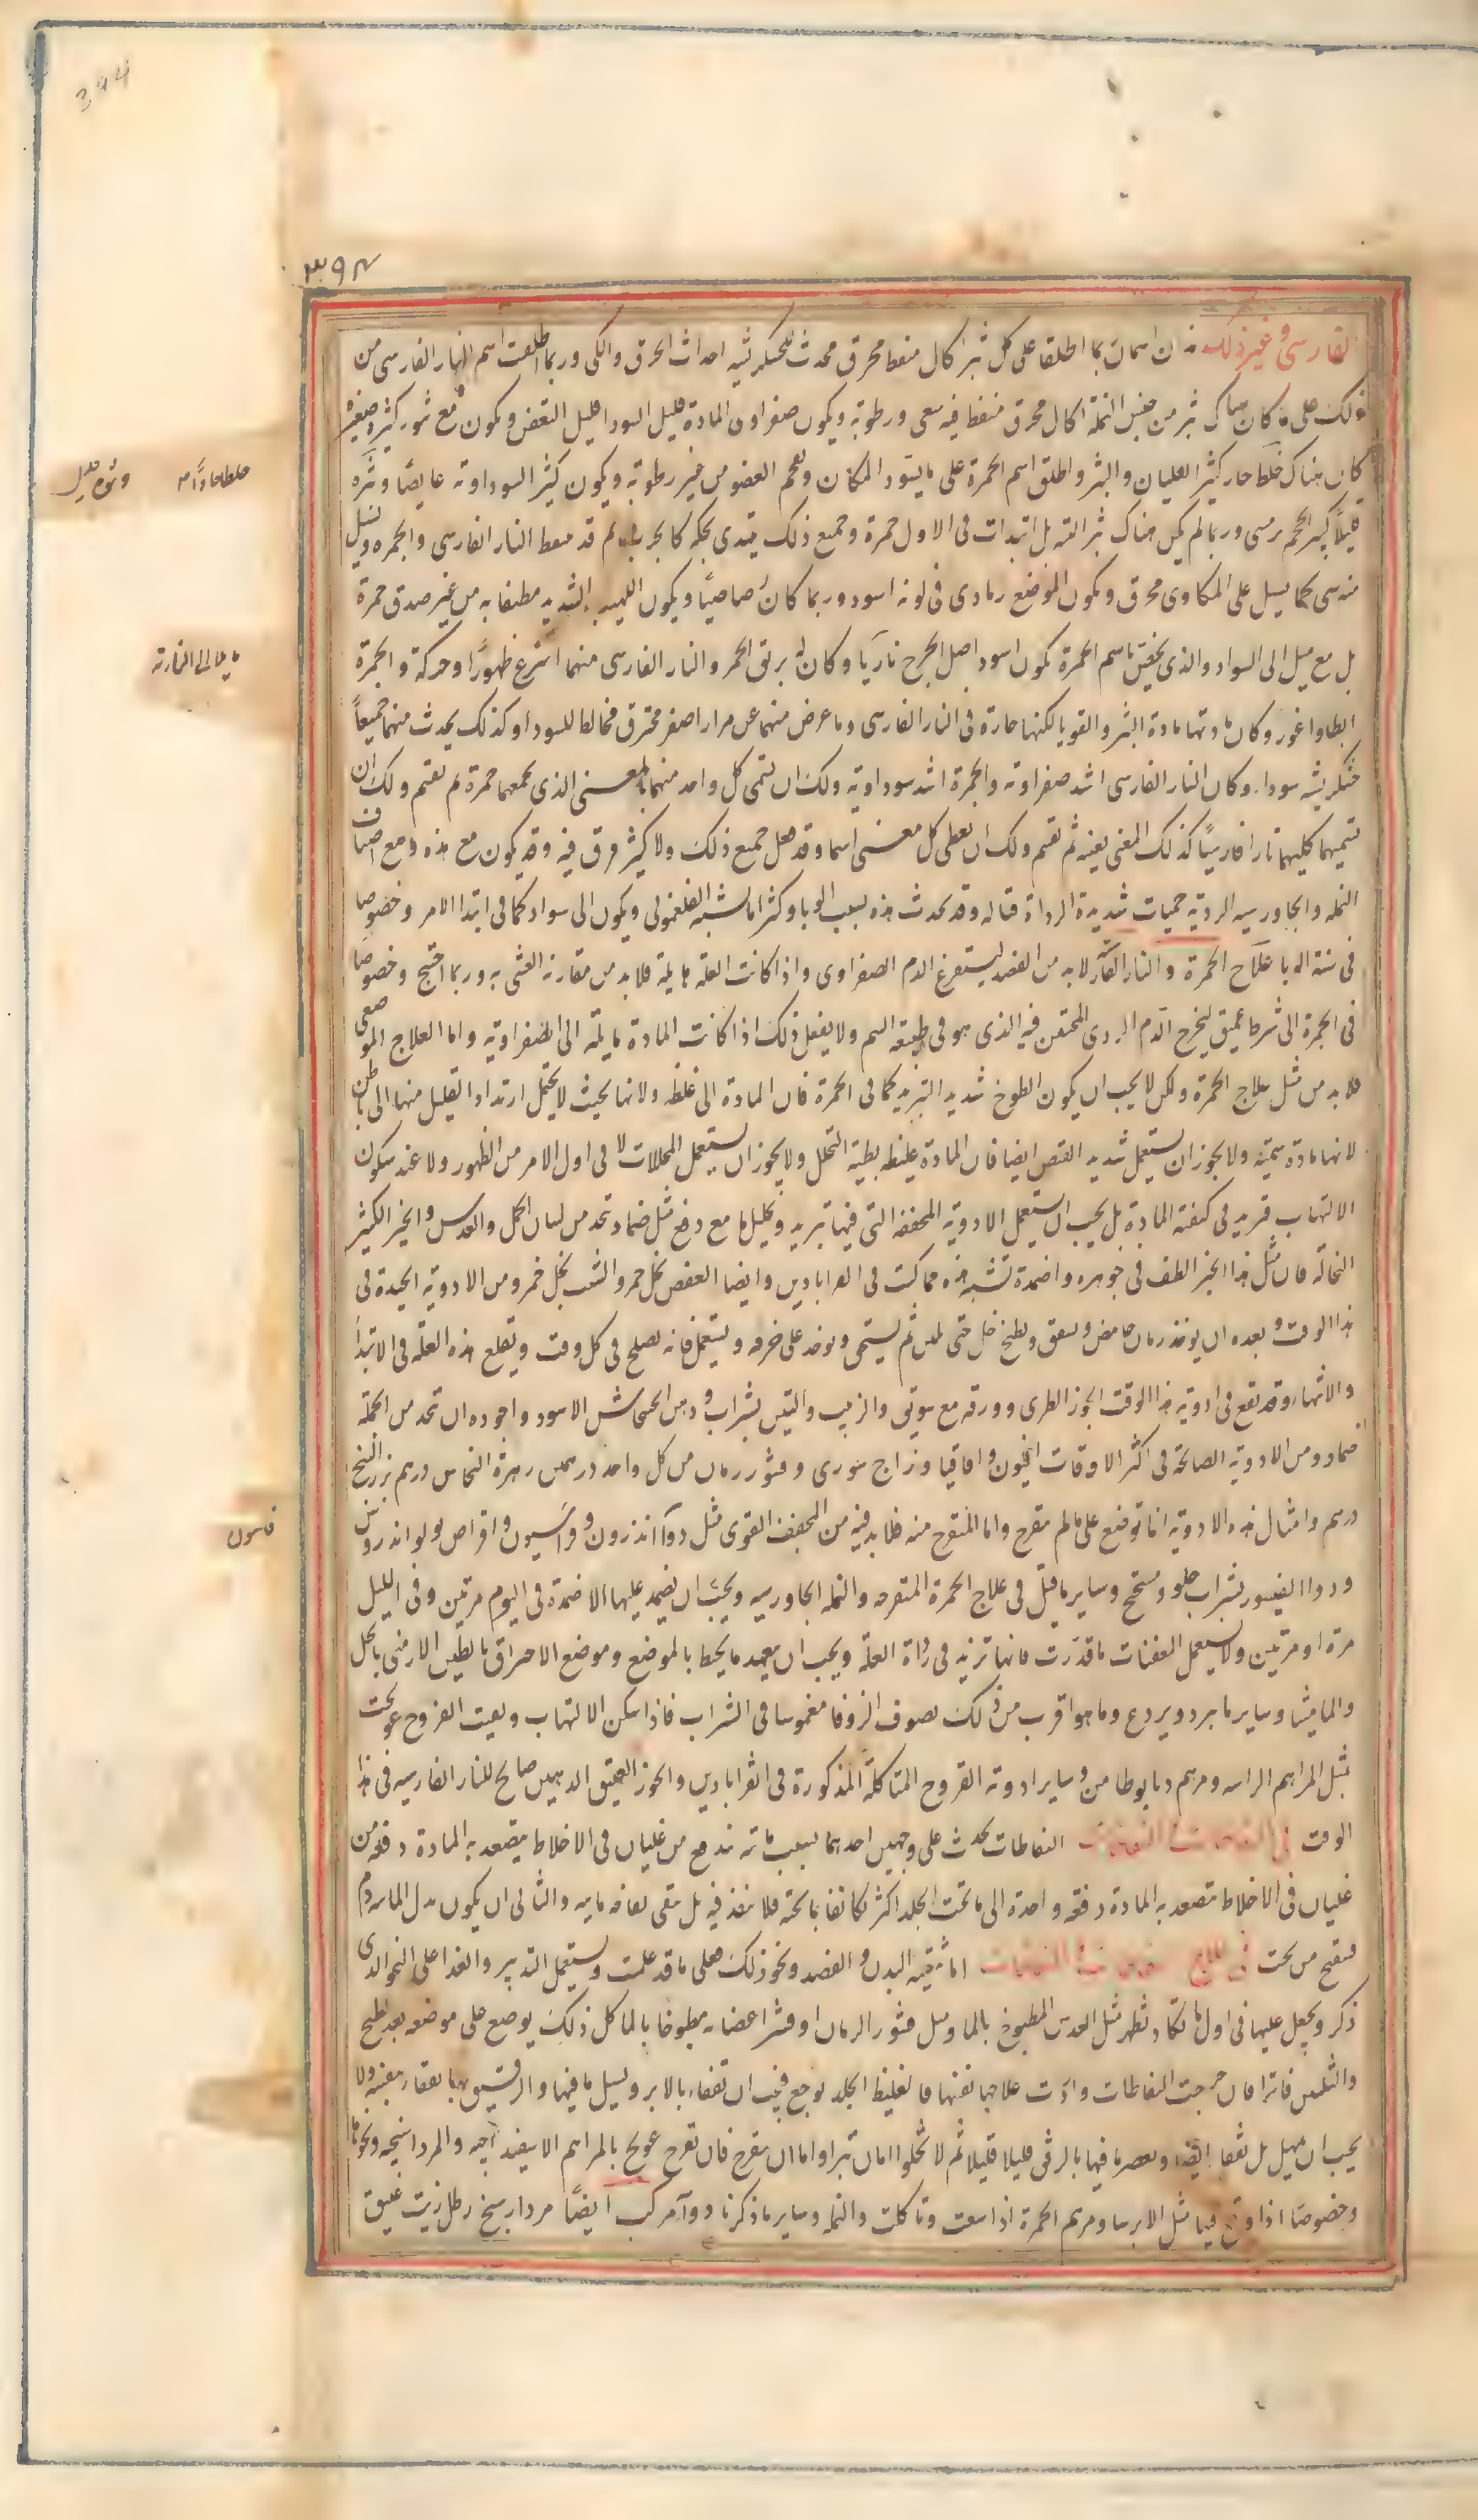 394
٣٩٤
الفارسی وغیر ذلك هذان اسمان ربما اطلقا علی کل بثر اکال منفط محرق محدث للخشکریشه احداث الحرق والکی وربما اطلقت اسم النار الفارسی من
ذلک علی ما کان هناک بثر من جنس النمله اکال محرق منفط فیه سعی ورطوبة ویکون صفراوی المادة قلیل السودا قلیل التعفن ویکون مع بثور کثیرة صغیرة
کان هناک خلط حار کثیر الغلیان والبثر واطلق اسم الجمرة علی ما یسود المکان ویفحم العضو من غیر رطوبة ویکون کثیر السوداویة غایصا وبثره
قلیلا کبیر الحجم ترمسی وربما لم یکن هناک بثر البته بل ابتدات فی الاول جمرة وجمیع ذلک یبتدی بحکه کالجرب ثم قد ینفط النار الفارسی والجمره ویسیل
منه شی کما یسیل علی المکاوی محرق ویکون الموضع رمادی فی لونه اسود وربما کان رصاصیا ویکون اللهیب الشدید مطیفا به من غیر صدق حمرة
بل مع میل الی السواد والذی یختص باسم الجمرة یکون اسود اصل الجرح ناریا وکان له بریق الجمر والنار الفارسی منهما اسرع ظهورا وحرکة والجمرة
ابطا واغور وکان مادتها مادة البثر والقوبا لکنها حارة فی النار الفارسی وما عرض منهما عن مرار اصفر محترق مخالط للسودا وکذلک یحدث منهما جمیعا
خشکریشه سودا وکان النار الفارسی اشد صفراویة والجمرة اشد سوداویة ولک ان تسمی کل واحد منهما بالمعنی الذی یجمعهما جمرة ثم تقسم ولک ان
تسمیهما کلیهما نارا فارسیا کذلک المعنی بعینه ثم تقسم ولک ان تعطی کل معنی اسما وقد فعل جمیع ذلک ولا کثیر فرق فیه وقد یکون مع هذه ومع اصناف
النمله والجاورسیه الردیة حمیات شدیدة الرداة قتاله وقد تحدث هذه بسبب الوبا وکثیرا ما تشبه الفلغمونی ویکون الی سواد کما فی ابتدا الامر وخصوصا
فی سنة الوبا علاج الجمرة والنار الفار لا بد من الفصد لیستفرغ الدم الصفراوی واذا کانت العلة هایلة فلا بد من مقارنة الغشی به وربما احتیج وخصوصا
فی الجمرة الی شرط عمیق لیخرج الدم الردی المحتقن فیه الذی هو فی طبیعة السم ولا یفعل ذلک اذا کانت المادة مایلة الی الصفراویة واما العلاج الموضعی
فلا بد من مثل علاج الحمرة ولکن لا یجب ان یکون الطلوخ شدید التبرید کما فی الحمرة فان المادة الی غلظ ولانها بحیث لا یحتمل ارتداد القلیل منها الی باطن
لانها مادة سمیة ولا یجوز ان یستعمل شدید القبض ایضا فان المادة غلیظه بطیة التحلل ولا یجوز ان یستعمل المحللات لا فی اول الامر من الظهور ولا عند سکون
الالتهاب فیزید فی کیفیة المادة بل یجب ان یستعمل الادویة المجففه التی فیها تبرید وتحلیل ما مع دفع مثل ضماد تتخذ من لسان الحمل والعدس والخبز الکثیر
النخاله فان مثل هذا الخبز الطف فی جوهره واضمدة تشبه هذه مما کتبت فی القراباذین وایضا العفص بخل خمر والشب بخل خمر ومن الادویة الجیدة فی
هذا الوقت وبعده ان یوخذ رمان حامض ویشقق ویطبخ بخل حتی یلین ثم یسحق ویوخذ علی خرقه ویستعمل فانه یصلح فی کل وقت ویقلع هذه العلة فی الابتدا
والانتها وقد تقع فی ادویة هذا الوقت الجوز الطری وورقه مع سویق والزبیب والتین بشراب ومن الخشخاش الاسود واجوده ان تتخذ من الجملة
ضماد ومن الادویة الصالحة فی اکثر الاوقات افیون واقاقیا وزاج سوری وقشور رمان من کل واحد درهمین زهرة النحاس درهم بزر البنج
درهم وامثال هذه الادویة انما توضع علی ما لم یتقرح واما المتقرح منه فلا بد فیه من المجفف القوی مثل دواء اندرون وفراسیون واقراص بولو اندرون
ودواء القیسور بشراب حلو ومسخ وسایر ما قیل فی علاج الحمرة المتقرحه والنمله الجاورسیه ویجب ان یضمد علیها الاضمدة فی الیوم مرتین وفی اللیل
مرة او مرتین ولا یستعمل المعفنات ما قدرت فانها تزید فی رداة العلة ویجب ان یتعهد ما یحیط بالموضع وموضع الاحراق بالطین الارمنی بالخل
والمامیثا وسایر ما یبرد ویردع وما هو اقرب من ذلک بصوف الزوفا مغموسا فی الشراب فاذا سکن الالتهاب وبقیت القروح عولجت
بمثل المراهم الراسه ومرهم دیابوطامن وسایر ادویة القروح المتاکلة المذکورة فی القراباذین والجوز العتیق الدهین صالح للنار الفارسیه فی هذا
الوقت فی النفاطات النفاطات تحدث علی وجهین احدهما بسبب مائیه تندفع من غلیان فی الاخلاط یتصعد به المادة دفعة من
غلیان فی الاخلاط یتصعد به المادة دفعة واحدة الی ما تحت الجلد اکثر تکاثفا مما تحته فلا ینفذ فیه بل یبقی نفاخه مائیه والثانی ان یکون بدل المائیه دم
فیتقیح من تحت فی علاج اما تنقیة البدن والفصد ونحو ذلک فعلی ما قد علمت ویستعمل التدبیر والغذا علی النحو الذی
ذکر ویجعل علیها فی اول ما تکاد تظهر مثل العدس المطبوخ بالما ومثل قشور الرمان او قشر اغصانه مطبوخا بالما کل ذلک یوضع علی موضعه بعد طبخ
والتلیین فاترا فان خرجت النفاطات واردت علاجها نفسها فالغلیظ الجلد یوجع فیجب ان تفقا بالابر ویسیل ما فیها والرقیق ربما تفقا بنفسه ولا
یجب ان یمهل بل تفقا ایضا ویعصر ما فیها بالرفق قلیلا قلیلا ثم لا تخلوا اما ان تبرا واما ان تتقرح فان تقرح عولج بالمراهم الاسفیذاجیه والمرداسنجیه ونحوها
وخصوصا اذا وقع فیها مثل الایرسا ومرهم الحمرة اذا سعت وتاکلت والنمله وسایر ما ذکرنا دواء مرکب ایضا مرداسنج رطل زیت عتیق